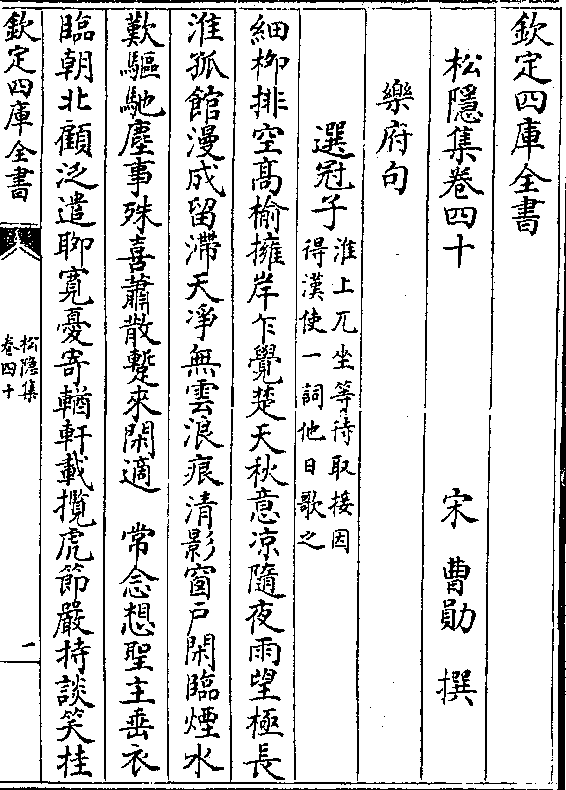 欽定四庫全書
松隱集卷四十
宋 曹勛 撰
樂府句
選冠子
淮上兀坐等待取接因
得漢使一詞他日歌之
細栁排空髙榆擁岸乍覺楚天秋意凉隨夜雨望極長
淮孤館漫成留滯天淨無雲浪痕清影窗戸閑臨煙水
歎驅馳塵事殊喜蕭散蹔來閑適 常念想聖主垂衣
臨朝北顧泛遣聊寛憂寄輶軒載攬虎節嚴持談笑挂
欽定四庫全書
松隐集
卷四十
一